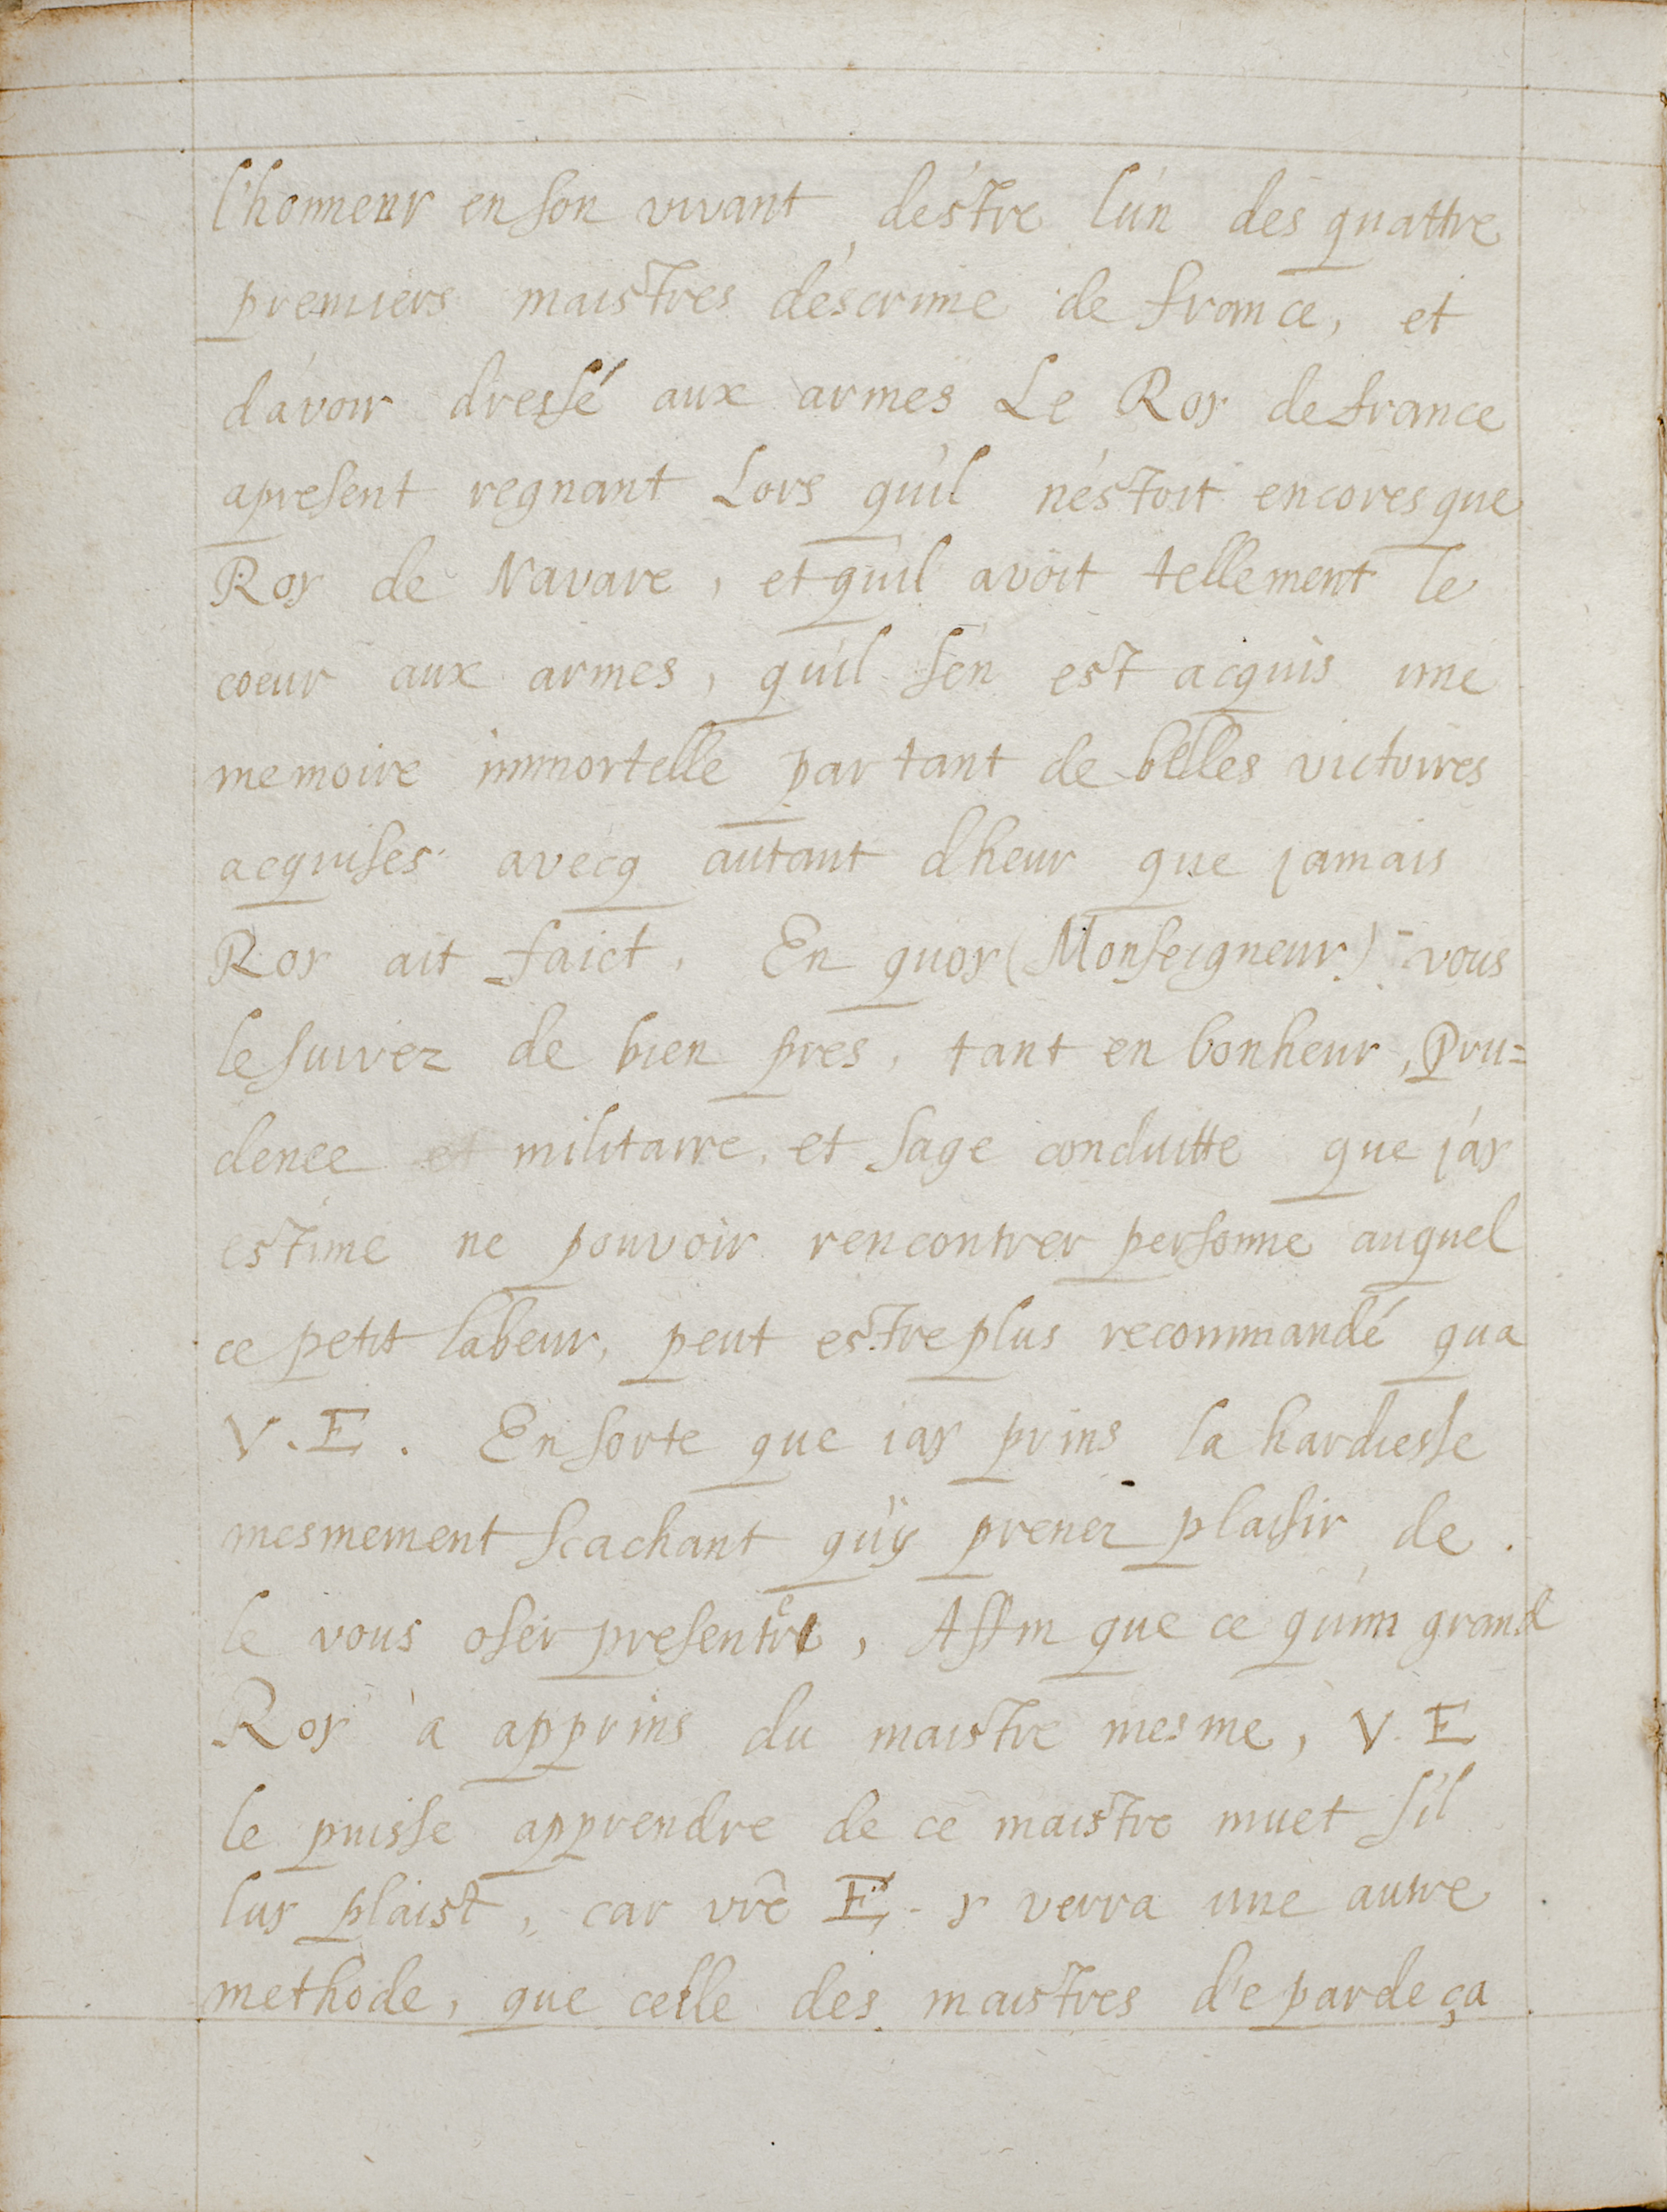 l'honneur en son vivant, d'estre l'un des quattre
premiers maistres d'escrime de france, et
d'avoir dressé aux armes Le Roy de france
apresent regnant Lors qu'il n'estoit encores que
Roy de Navare, et qu'il avoit tellement le
coeur aux armes, qu'il s'en est acquis une
memoire immortelle par tant de belles victoires
acquises avecq autant d'heur que jamais
Roy ait faict. En quoy (Monseigneur) vous
le suivez de bien pres, tant en bonheur, Pru=
dence et militaire, et sage conduitte que j'ay
estime ne pouvoir rencontrer personne auquel
ce petit labeur, peut estre plus recommandé qua
V.E. En sorte que iay prins la hardiesse
mesmement scachant qu'y prenez plaisir de
le vous oser presenter, Affin que ce qu'un grand
Roy à apprins du maistre mesme, V.E
le puisse apprendre de ce maistre muet s'il
luy plaist, car vrē E. y verra une autre
methode, que celle des maistres de par deça